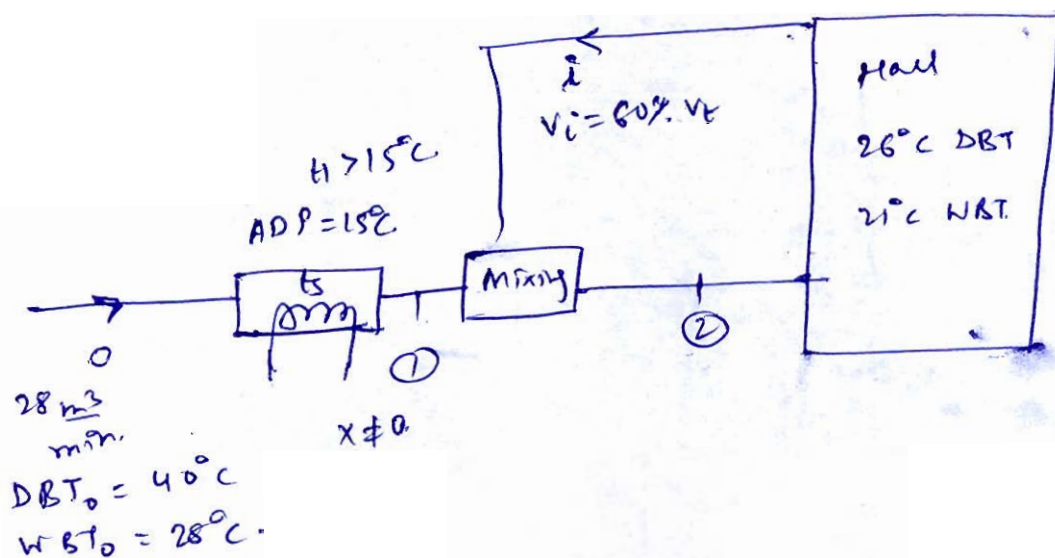 i
Vi = 60% Vt
Hall
26°C DBT
21°C WBT.
t1 > 15°C
ADP = 15°C
ts
Mixing
0
①
②
28 m³/min.
x ≠ 0
DBT₀ = 40°C
WBT₀ = 28°C.